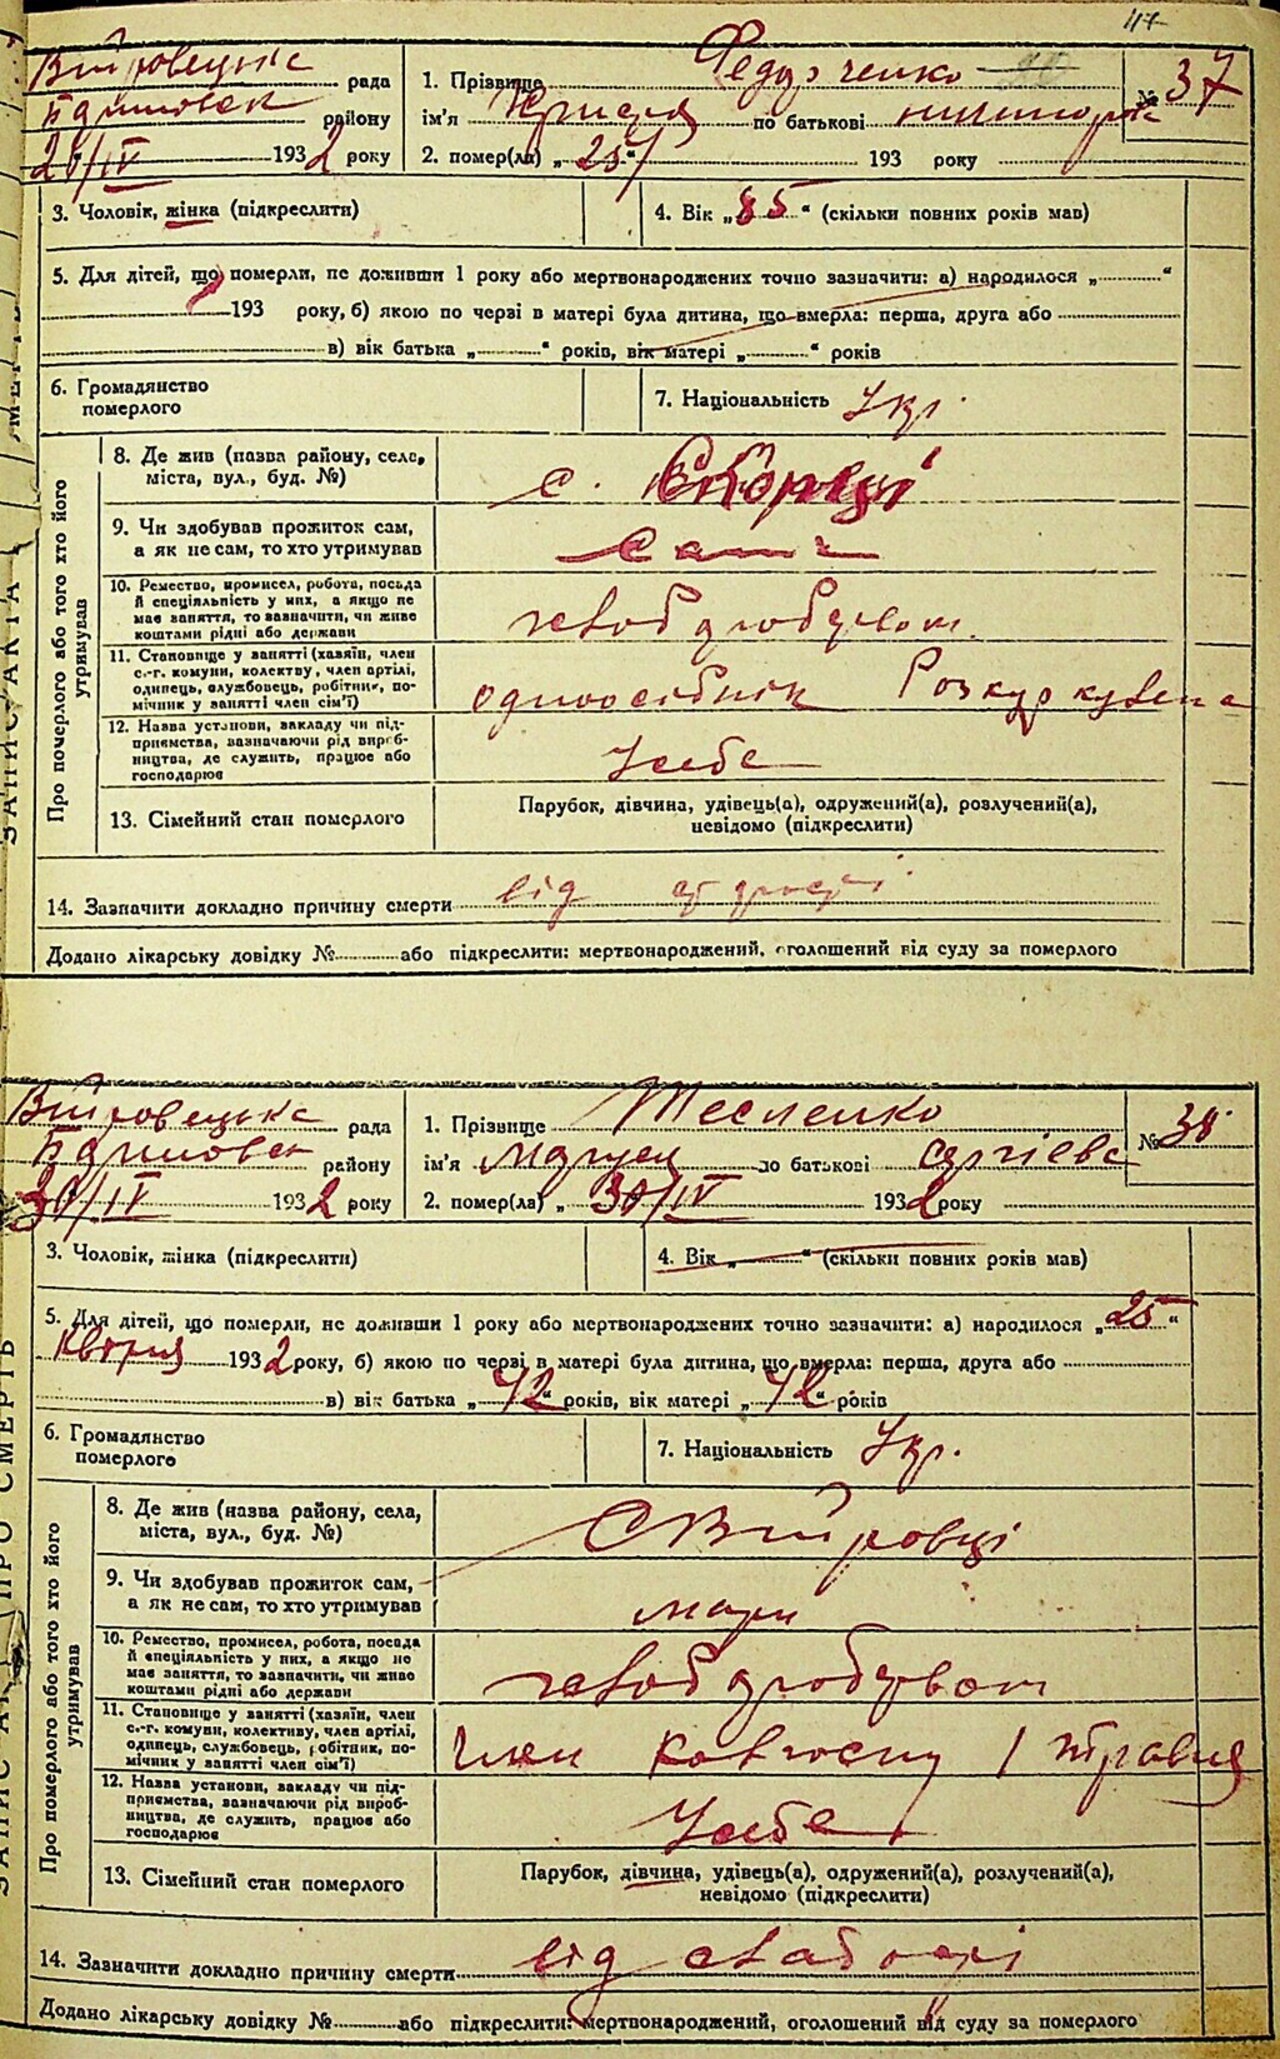 47
Вітровецька рада
району
26/IV 1932 року
1. Прізвище
№ 37
ім'я по батькові
2. помер(ла) „ “ 193 року
3. Чоловік, жінка (підкреслити)
4. Вік „85“ (скільки повних років мав)
5. Для дітей, що померли, не доживши 1 року або мертвонароджених точно зазначити: а) народилося „ “
193 року, б) якою по черзі в матері була дитина, що вмерла: перша, друга або
в) вік батька „ “ років, вік матері „ “ років
6. Громадянство
померлого
7. Національність Укр.
ЗАПИС АКТА
Про померлого або того хто його
утримував
8. Де жив (назва району, села,
міста, вул., буд. №)
с.
9. Чи здобував прожиток сам,
а як не сам, то хто утримував
сама
10. Ремество, промисел, робота, посада
й спеціяльність у них, а якщо не
має заняття, то зазначити, чи живе
коштами рідні або держави
хлібороб
11. Становище у занятті (хазяїн, член
с.-г. комуни, колективу, член артілі,
одинець, службовець, робітник, по-
мічник у занятті член сім'ї)
одноосібник Розкуркулена
12. Назва установи, закладу чи під-
приємства, зазначаючи рід вироб-
ництва, де служить, працює або
господарює
У себе
13. Сімейний стан померлого
Парубок, дівчина, удівець(а), одружений(а), розлучений(а),
невідомо (підкреслити)
14. Зазначити докладно причину смерти від
Додано лікарську довідку № або підкреслити: мертвонароджений, оголошений від суду за померлого
Вітровецька рада
району
30/IV 1932 року
1. Прізвище Тесленко
№ 38
ім'я Маруся по батькові Сергієва
2. помер(ла) „ 30/IV 1932 року
3. Чоловік, жінка (підкреслити)
4. Вік „ “ (скільки повних років мав)
5. Для дітей, що померли, не доживши 1 року або мертвонароджених точно зазначити: а) народилося „25“
Квітня 1932 року, б) якою по черзі в матері була дитина, що вмерла: перша, друга або
в) вік батька „42“ років, вік матері „42“ років
6. Громадянство
померлого
7. Національність Укр.
ЗАПИС АКТА ПРО СМЕРТЬ
Про померлого або того хто його
утримував
8. Де жив (назва району, села,
міста, вул., буд. №)
с Вітровці
9. Чи здобував прожиток сам,
а як не сам, то хто утримував
10. Ремество, промисел, робота, посада
й спеціяльність у них, а якщо не
має заняття, то зазначити, чи живе
коштами рідні або держави
11. Становище у занятті (хазяїн, член
с.-г. комуни, колективу, член артілі,
одинець, службовець, робітник, по-
мічник у занятті член сім'ї)
член колгоспу 1 травня
12. Назва установи, закладу чи під-
приємства, зазначаючи рід вироб-
ництва, де служить, працює або
господарює
У себе
13. Сімейний стан померлого
Парубок, дівчина, удівець(а), одружений(а), розлучений(а),
невідомо (підкреслити)
14. Зазначити докладно причину смерти від слабості
Додано лікарську довідку № або підкреслити: мертвонароджений, оголошений від суду за померлого